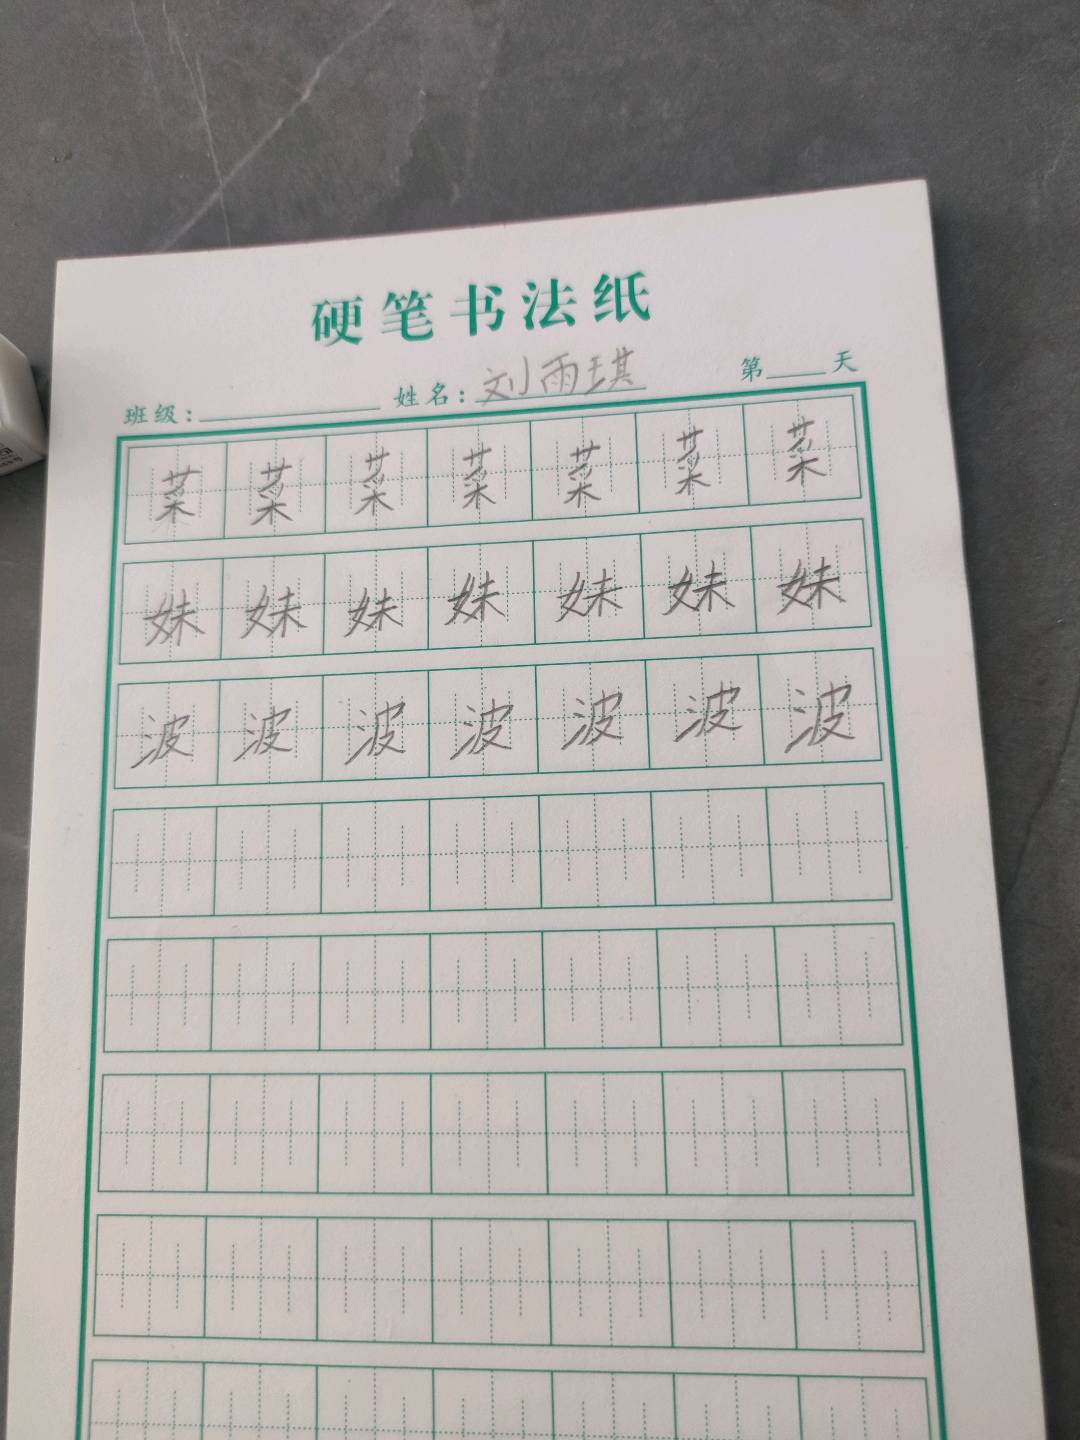 硬笔书法纸
班级: 姓名: 刘雨琪 第 天
菜菜菜菜菜菜菜
妹妹妹妹妹妹妹
波波波波波波波